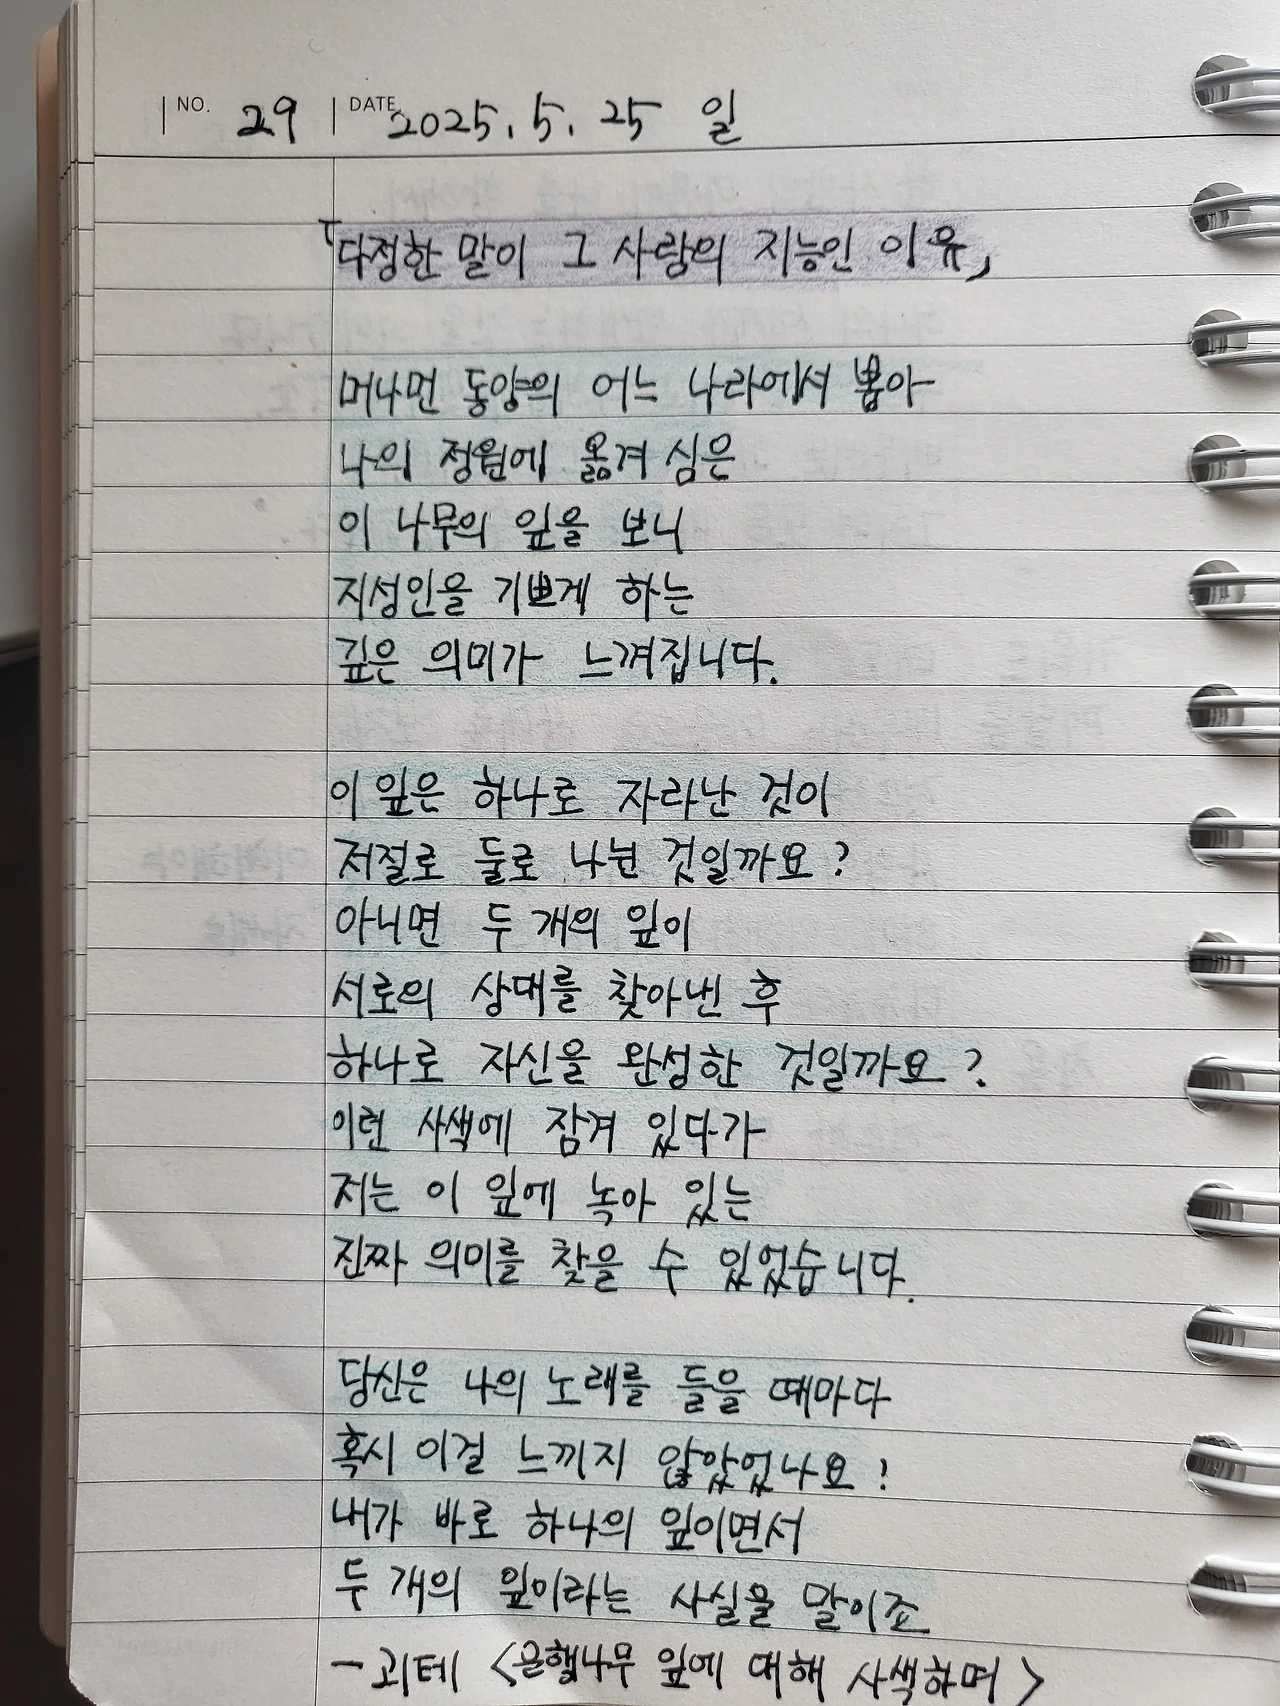 NO. 29 DATE 2025. 5. 25 일
「다정한 말이 그 사람의 지능인 이유」
머나먼 동양의 어느 나라에서 뽑아
나의 정원에 옮겨 심은
이 나무의 잎을 보니
지성인을 기쁘게 하는
깊은 의미가 느껴집니다.
이 잎은 하나로 자라난 것이
저절로 둘로 나뉜 것일까요?
아니면 두 개의 잎이
서로의 상대를 찾아낸 후
하나로 자신을 완성한 것일까요?
이런 사색에 잠겨 있다가
저는 이 잎에 녹아 있는
진짜 의미를 찾을 수 있었습니다.
당신은 나의 노래를 들을 때마다
혹시 이걸 느끼지 않았었나요?
내가 바로 하나의 잎이면서
두 개의 잎이라는 사실을 말이죠
- 괴테 <은행나무 잎에 대해 사색하며>